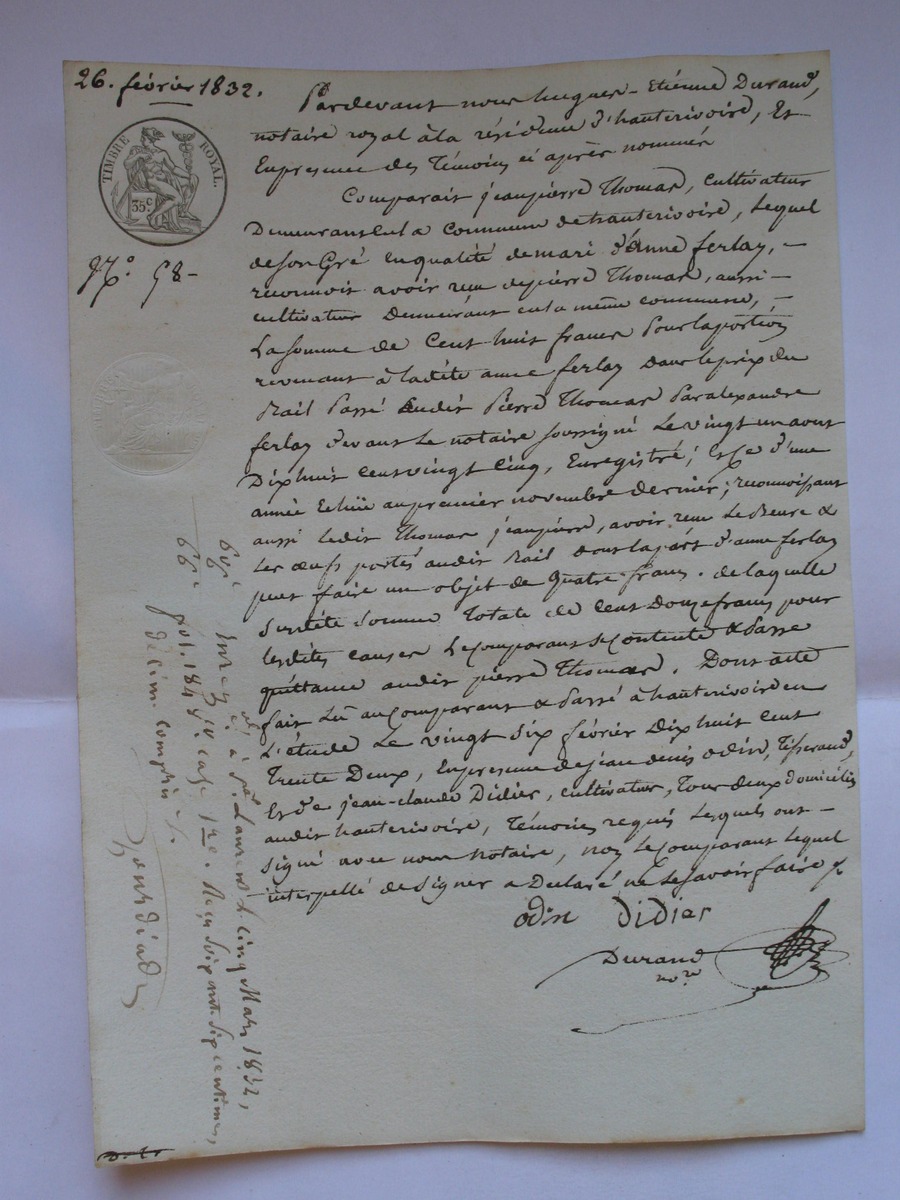 26. février 1832.
TIMBRE ROYAL.
35c.
N.° 98 -
Pardevant nous hugues - Etiénne Durand,
notaire royal à la résidence d'hauterivoire, Et
En presence des Témoins ci après nommés
Comparait jean pierre Thomas, cultivateur
Demeurant en la commune de hauterivoire, Lequel
de son Gré en qualité de mari d'Anne ferlay, -
reconnoit avoir reçu de pierre Thomas, aussi -
cultivateur Demeurant en la même commune, -
La somme de Cent huit francs Pour la portion
revenant à la dite anne ferlay dans le prix du
Bail Passé audit Pierre Thomas Par alexandre
ferlay devant Le notaire soussigné Le vingt un aout
Dix huit cent vingt cinq, Enregistré; Et ce d'une
année Echue au premier novembre dernier; reconnoissant
aussi Ledit Thomas jean pierre, avoir reçu Le Beure &
Les œufs portés audit Bail dans la part d'anne ferlay
pour faire un objet de quatre francs. de laquelle
Susdite somme Totale de Cent Douze francs pour
Lesdites causes Le comparant se contente & Passe
quittance audit pierre Thomas. Dont acte
fait Lu au comparant & Passé à hauterivoire en
L'étude Le vingt six février Dix huit cent
Trente Deux, En presence de jean denis odin, Tisserand,
Et de jean-claude Didier, cultivateur, Tous deux domiciliés
audit hauterivoire, Témoins requis Lesquels ont -
signé avec nous notaire, non Le comparant Lequel
interpellé de signer a Declaré ne le savoir faire
odin Didier
Durand
nore
Enreg. à St. Laurent Le cinq Mars 1832,
fol. 184 Vo case 1re. Reçu Soixante Six centimes,
décime compris